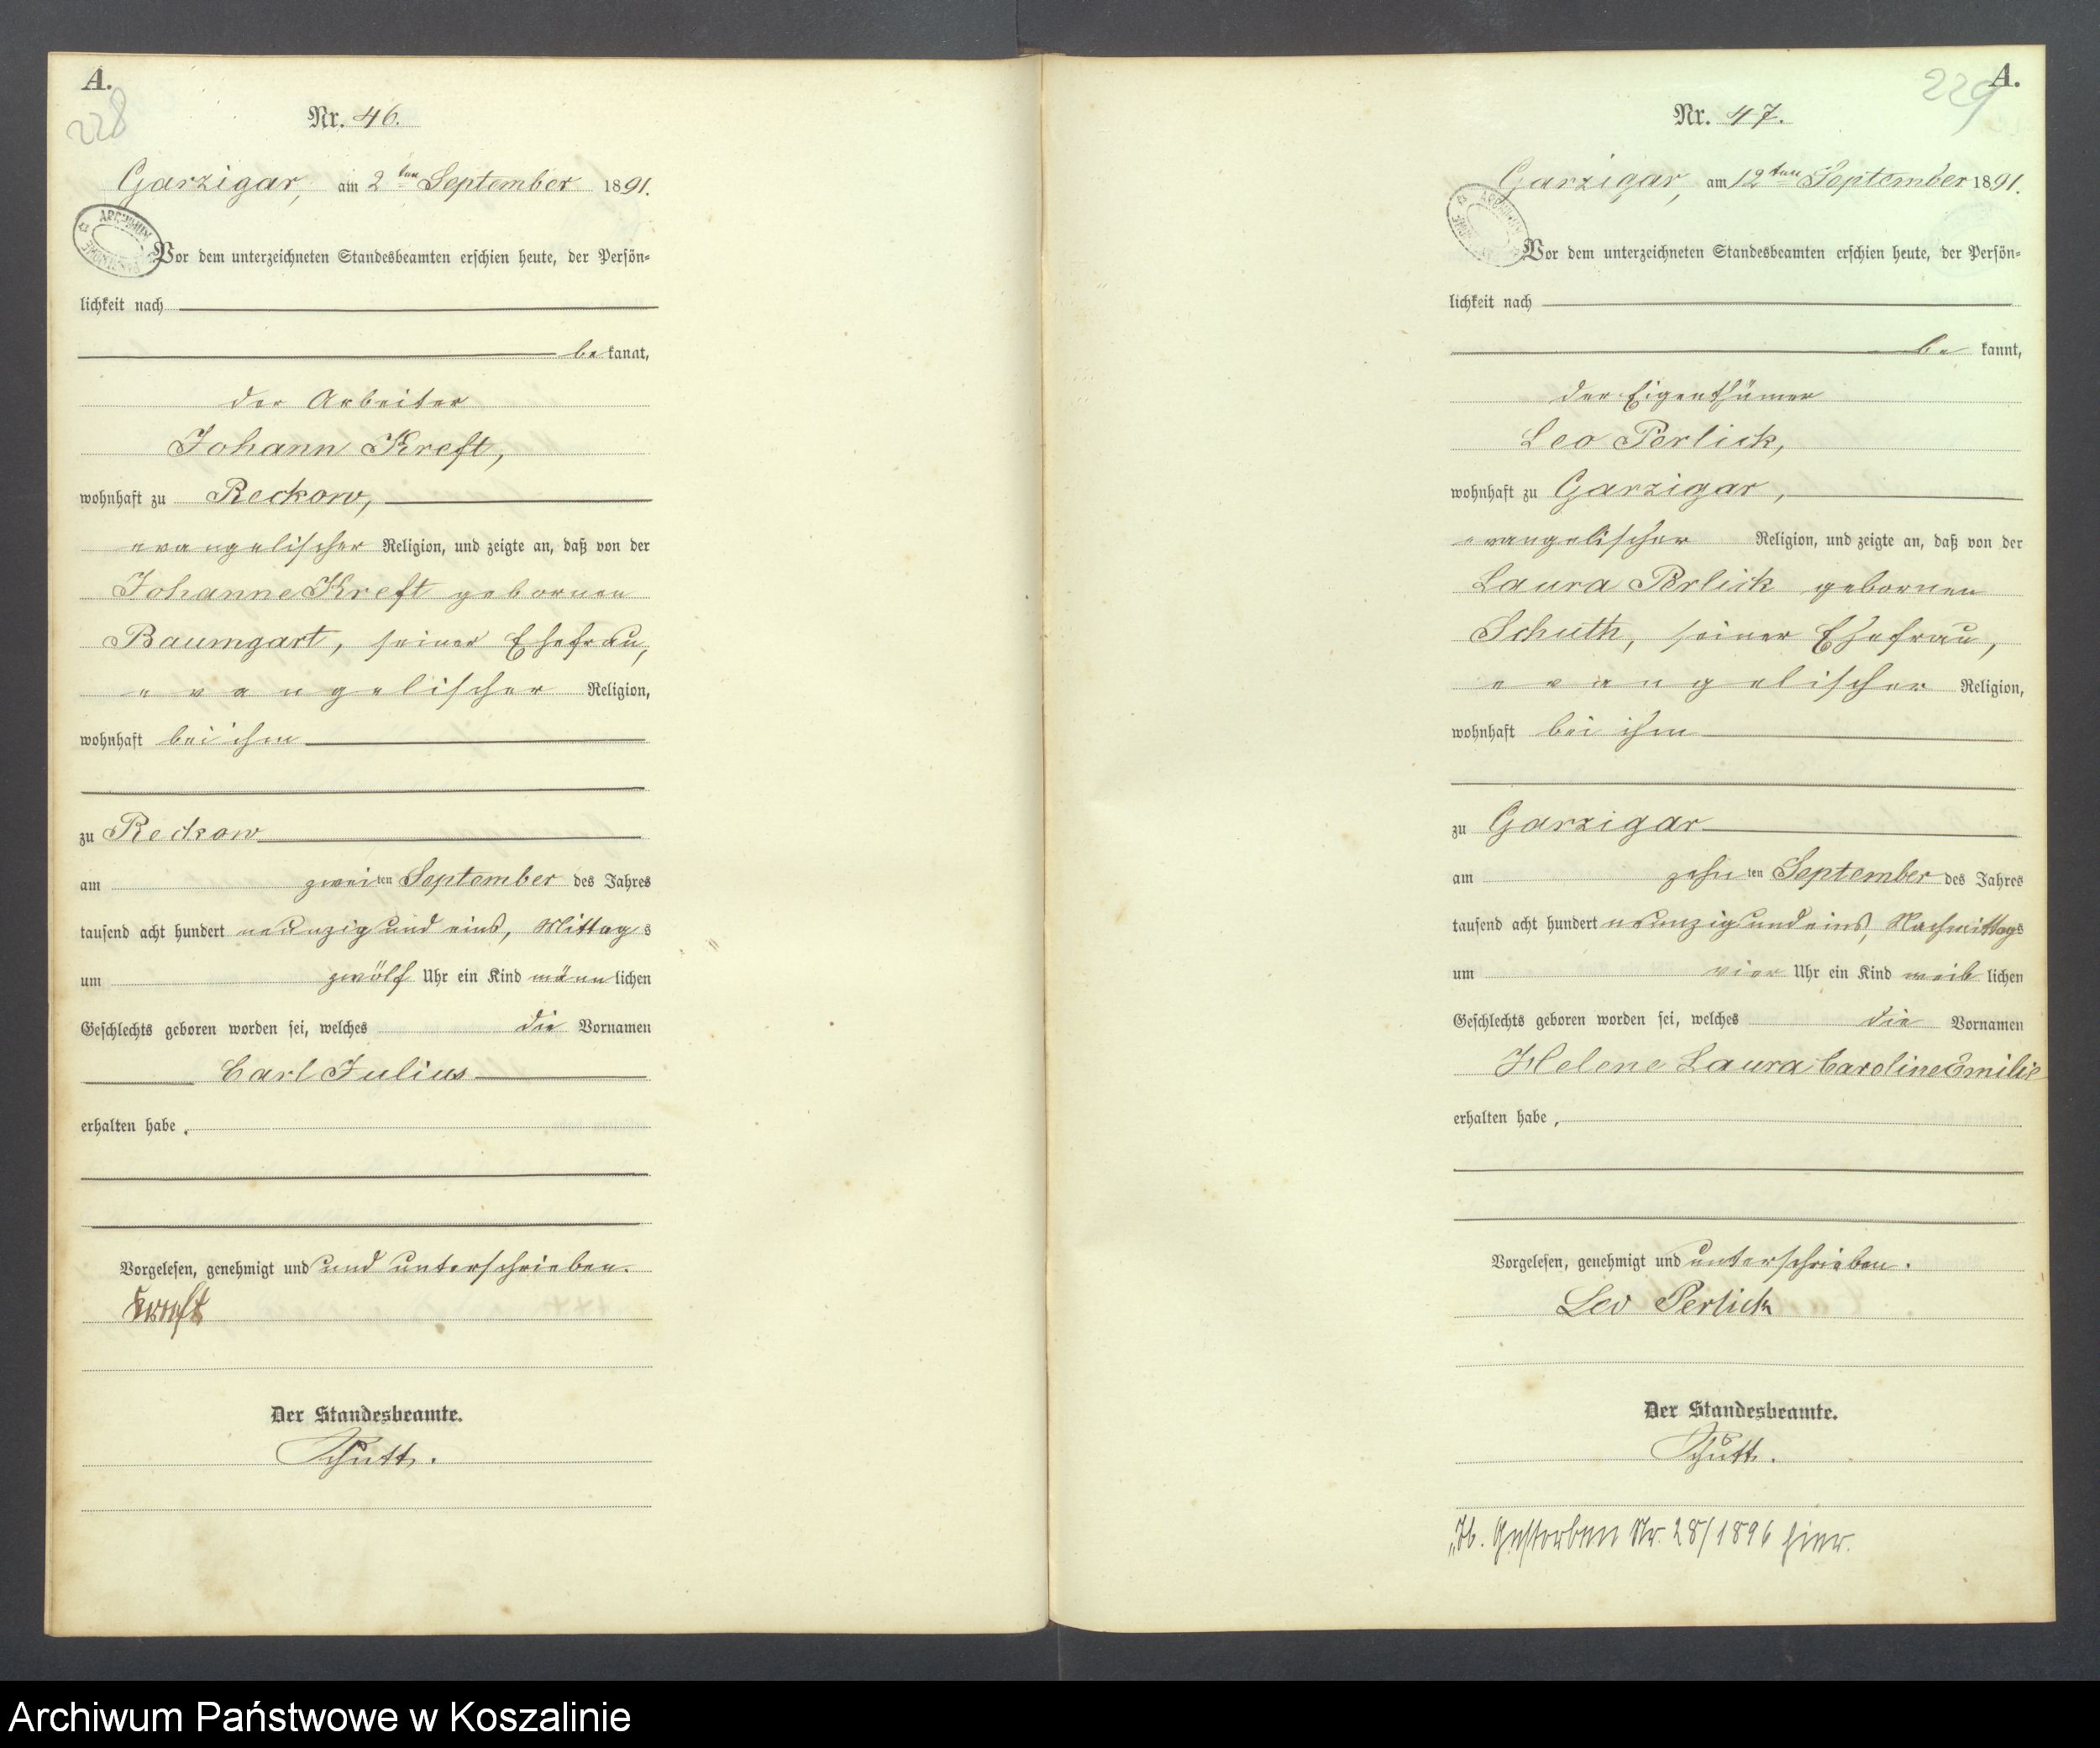 A.
228
Nr. 46.
Garzigar, am 2ten September 1891.
Vor dem unterzeichneten Standesbeamten erschien heute, der Persön-
lichkeit nach
bekannt,
der Arbeiter
Johann Kreft,
wohnhaft zu Reckow,
evangelischer Religion, und zeigte an, daß von der
Johanne Kreft gebornen
Baumgart, seiner Ehefrau,
evangelischer Religion,
wohnhaft bei ihm
zu Reckow
am zweiten September des Jahres
tausend acht hundert neunzig und eins, Mittags
um zwölf Uhr ein Kind männlichen
Geschlechts geboren worden sei, welches die Vornamen
Carl Julius
erhalten habe.
Vorgelesen, genehmigt und und unterschrieben.
Kreft
Der Standesbeamte.
Schütt.
A.
229
Nr. 47.
Garzigar, am 12ten September 1891.
ARCHIWUM
Vor dem unterzeichneten Standesbeamten erschien heute, der Persön-
lichkeit nach
be kannt,
der Eigenthümer
Leo Perlick,
wohnhaft zu Garzigar,
evangelischer Religion, und zeigte an, daß von der
Laura Perlick gebornen
Schuth, seiner Ehefrau,
evangelischer Religion,
wohnhaft bei ihm
zu Garzigar
am zehnten September des Jahres
tausend acht hundert neunzig und eins, Nachmittags
um vier Uhr ein Kind weiblichen
Geschlechts geboren worden sei, welches die Vornamen
Helene Laura Caroline Emilie
erhalten habe,
Vorgelesen, genehmigt und unterschrieben.
Leo Perlick
Der Standesbeamte.
Schütt.
Gestorben Nr. 28/1896 hier.
Archiwum Państwowe w Koszalinie